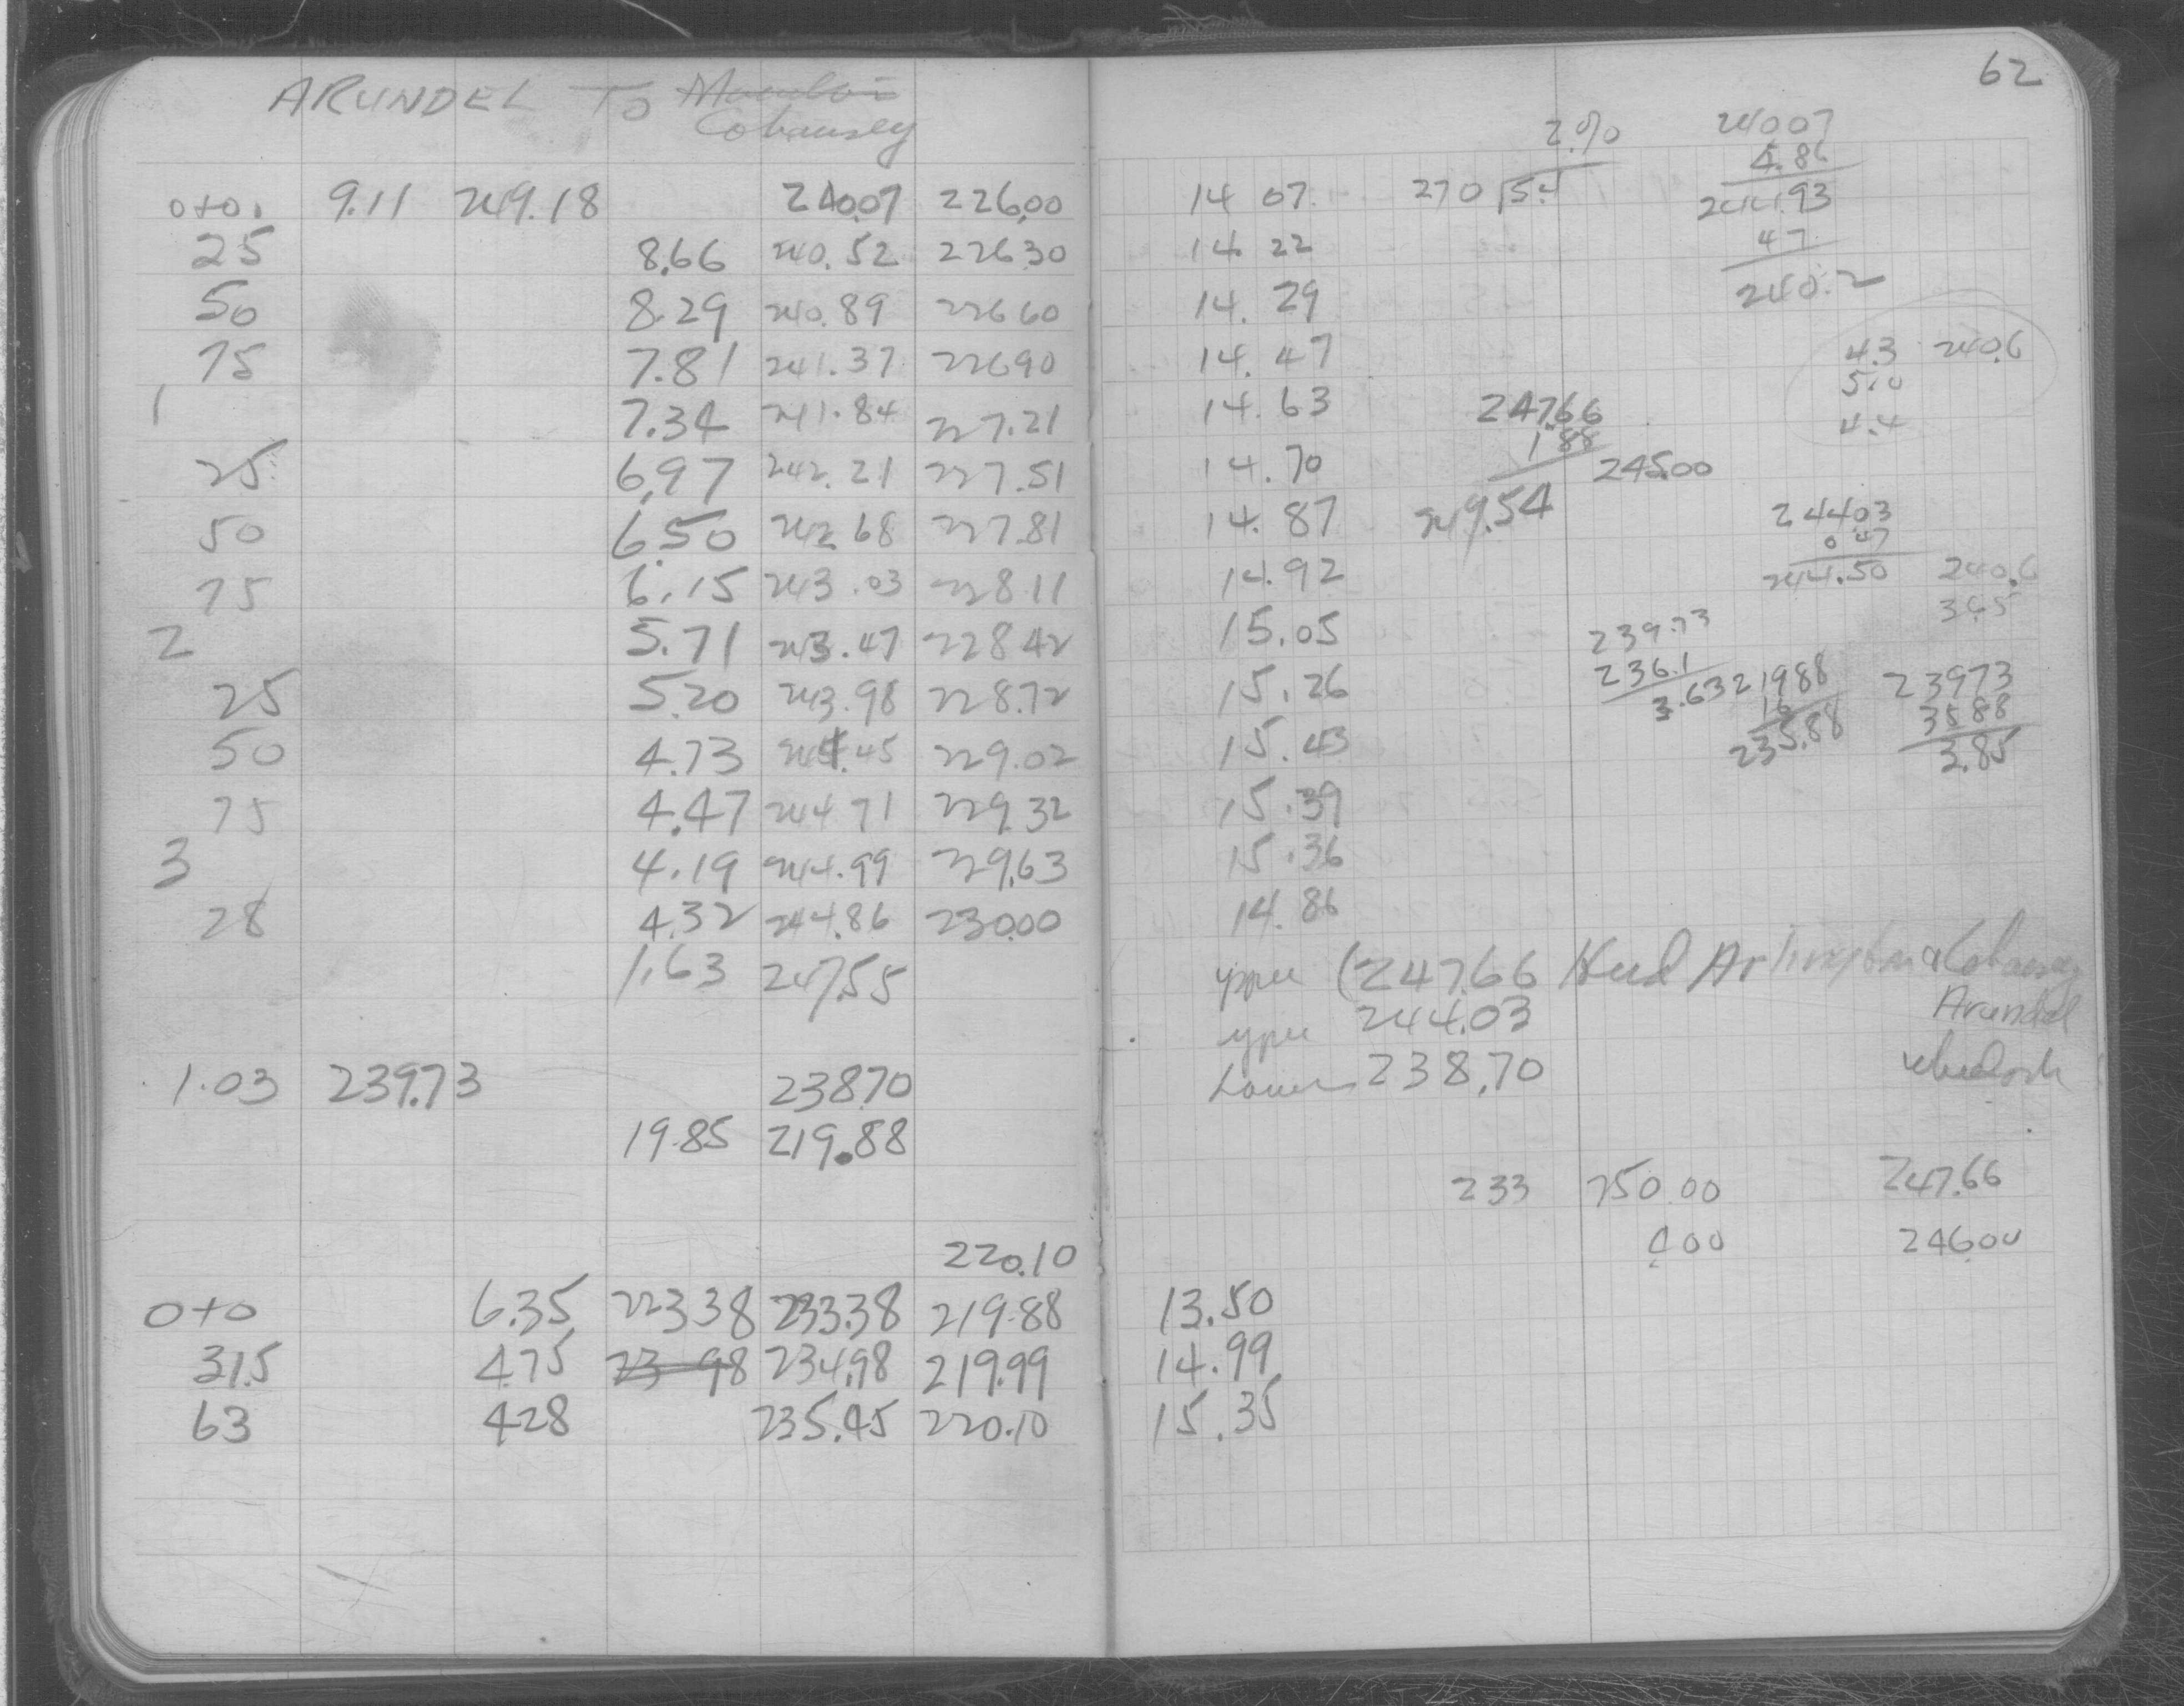 62
ARUNDEL TO
Cohansey
0+0. 9.11 249.18 240.07 226.00 14 07.
25 8.66 240.52 226.30 14. 22
50 8.29 240.89 226.60 14. 29
75 7.81 241.37 226.90 14. 47
1 7.34 241.84 227.21 14. 63
25 6.97 242.21 227.51 14. 70
50 6.50 242.68 227.81 14. 87
75 6.15 243.03 228.11 14. 92
2 5.71 243.47 228.42 15.05
25 5.20 243.98 228.72 15. 26
50 4.73 244.45 229.02 15. 43
75 4.47 244.71 229.32 15.39
3 4.19 244.99 229.63 15.36
28 4.32 244.86 230.00 14.86
1.63 247.55
1.03 239.73 238.70
19.85 219.88
220.10
0+0 6.35 223.38 233.38 219.88 13.50
31.5 4.75 23 98 234.98 219.99 14.99
63 4.28 235.45 220.10 15.35
2.%
270 5.4
240.07
4.86
244.93
47
240.2
4.3 240.6
5.0
4.4
247.66
1.88
249.54
245.00
244.03
0.47
244.50
240.6
3.65
239.73
236.1
3.63
219.88
16
235.88
239.73
35.88
3.85
(247.66 Hud Arlington & Cohansey
244.03 Arundel
Lower 238.70
233 250.00 247.66
4.00 246.00